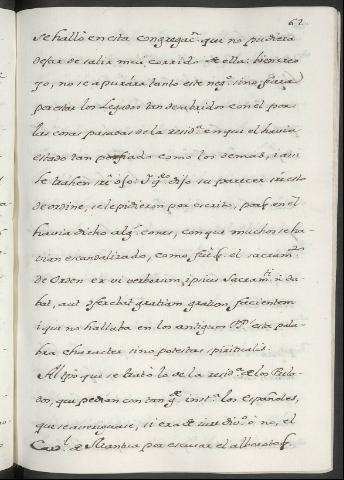 62
se hallò en esta congregac.ⁿ que no pudiera
dejar de salir mui corrido de ella: bien creo
yo, no se apurára tanto este neg.º sino fuera
por estar los Legados tan desabridos con el por
las cosas pasadas de la resid.ª en que el havia
estado tan porfiado como los demas, i assi
se trahen
dijo su parecer
de ordine, se le pidieron por escrito, porq. en el
havia dicho alg.ˢ cosas, con que muchos se ha-
vian escandalizado, como fué q. el sacram.ᵗᵒ
de Orden ex vi verborum, ipsius Sacram.ᵗⁱ n. da-
bat, aut oferebat gratiam gratum facientem
i que no hallaba en los antiguos PP.ˢ esta pala-
bra character sino potestas spiritualis.
Al tpô que se trató lo de la resid.ª de los Prela-
dos, que pedian con tan g.ᵉ inst.ª los Españoles,
que se averiguase, si era de iure div.º ò no, el
Card.ˡ de Mantua por escusar el alboroto q.